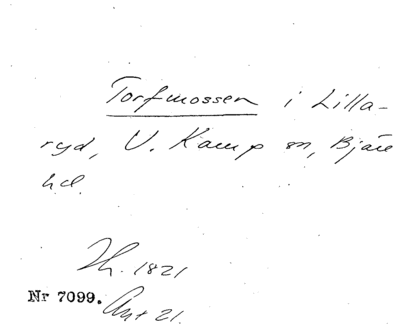 Torfmossen i Lilla-
ryd, V. Kamp sn, Bjäre
hd.
Th. 1821
Nr 7099. Ant 21.